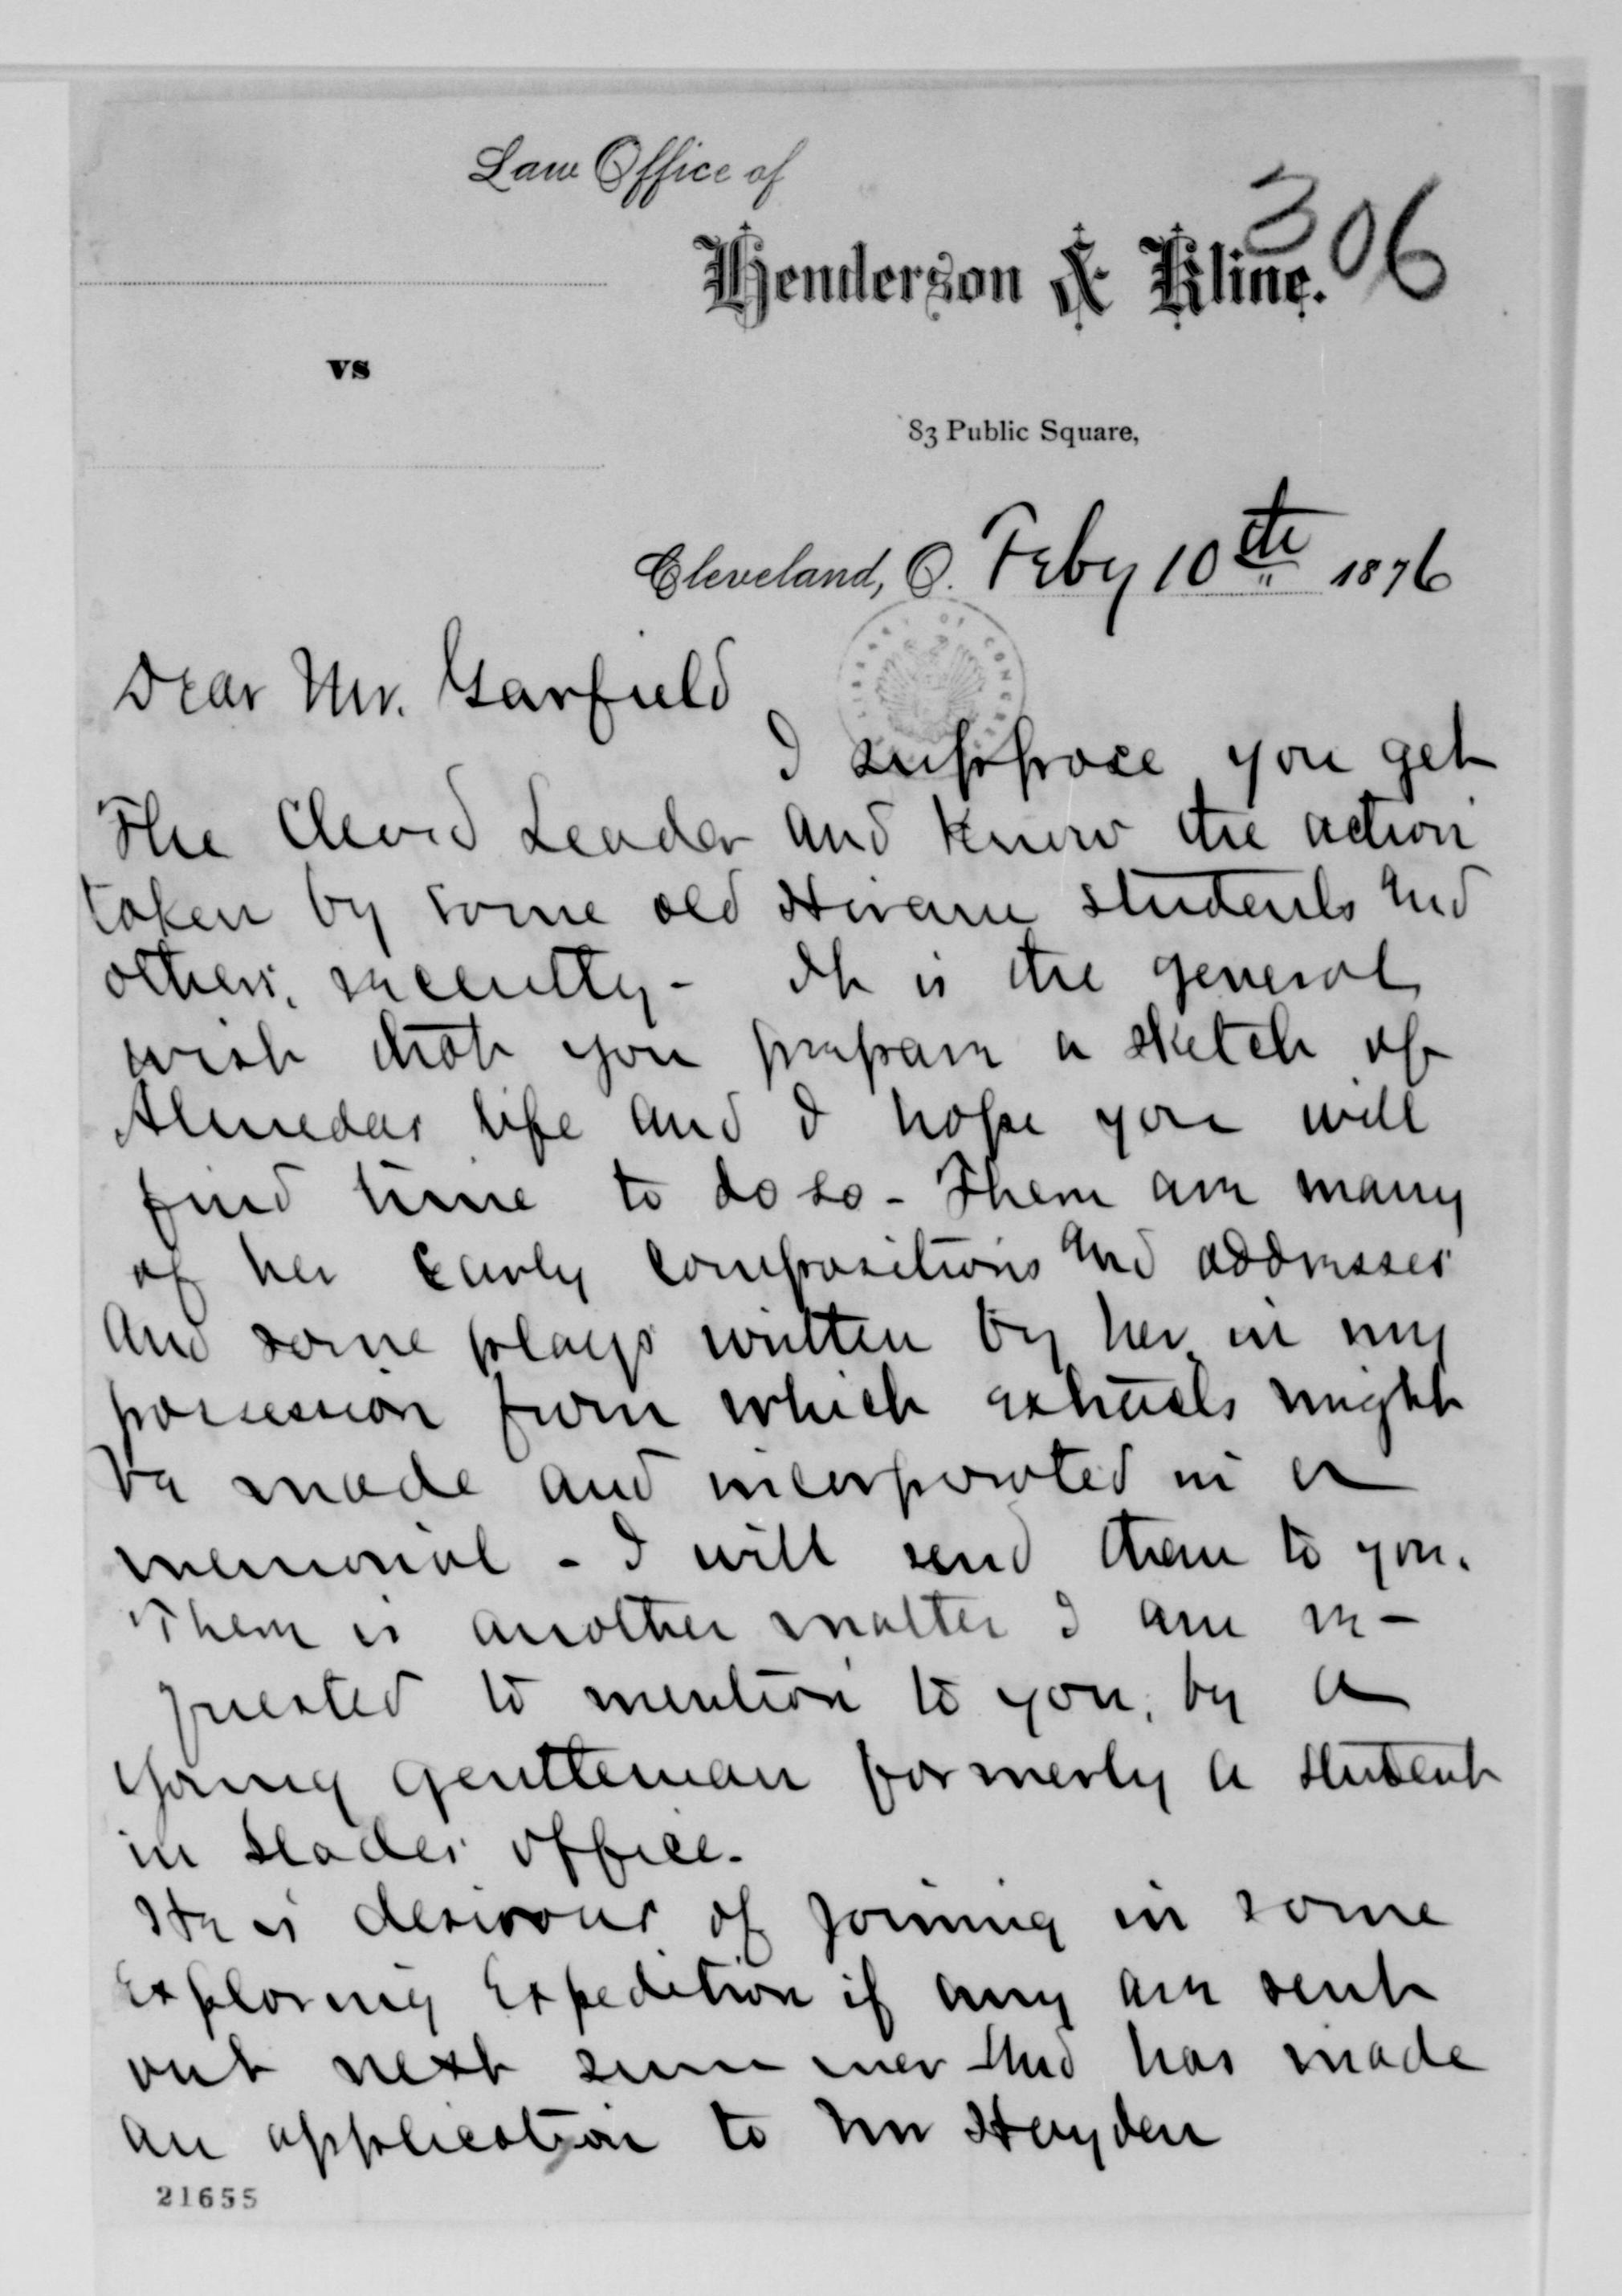 Law Office of
306
Henderson & Kline.
vs
83 Public Square,
Cleveland, O. Feby 10th 1876
LIBRARY OF CONGRESS
Dear Mr. Garfield
I suppose you get
The Clevd Leader and know the action
taken by some old Hiram students and
others, recently - It is the general
wish that you prepare a sketch of
Almedas life and I hope you will
find time to do so - There are many
of her early compositions and addresses
and some plays written by her in my
possession from which extracts might
be made and incorporated in a
memorial - I will send them to you.
There is another matter I am re-
quested to mention to you, by a
young gentleman formerly a student
in Slades office.
He is desirous of joining in some
Exploring Expedition if any are sent
out next summer and has made
an application to Mr Hayden
21655